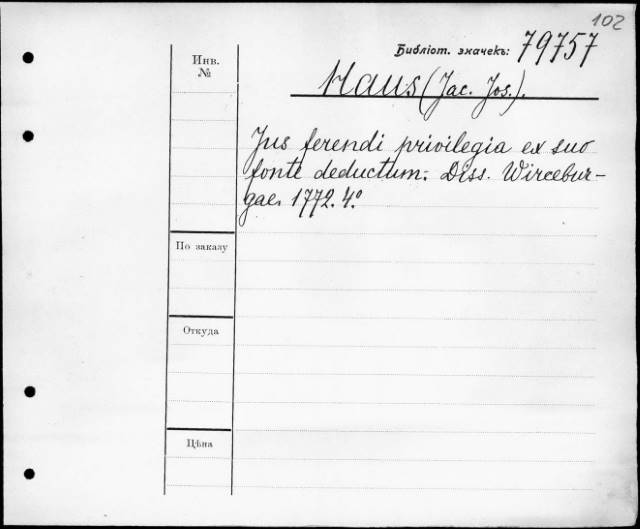 102
Библіот. значекъ: 79757
Инв.
№
Haus (Jac. Jos.).
Jus ferendi privilegia ex suo
fonte deductum. Diss. Wircebur-
gae. 1772. 4º
По заказу
Откуда
Цѣна